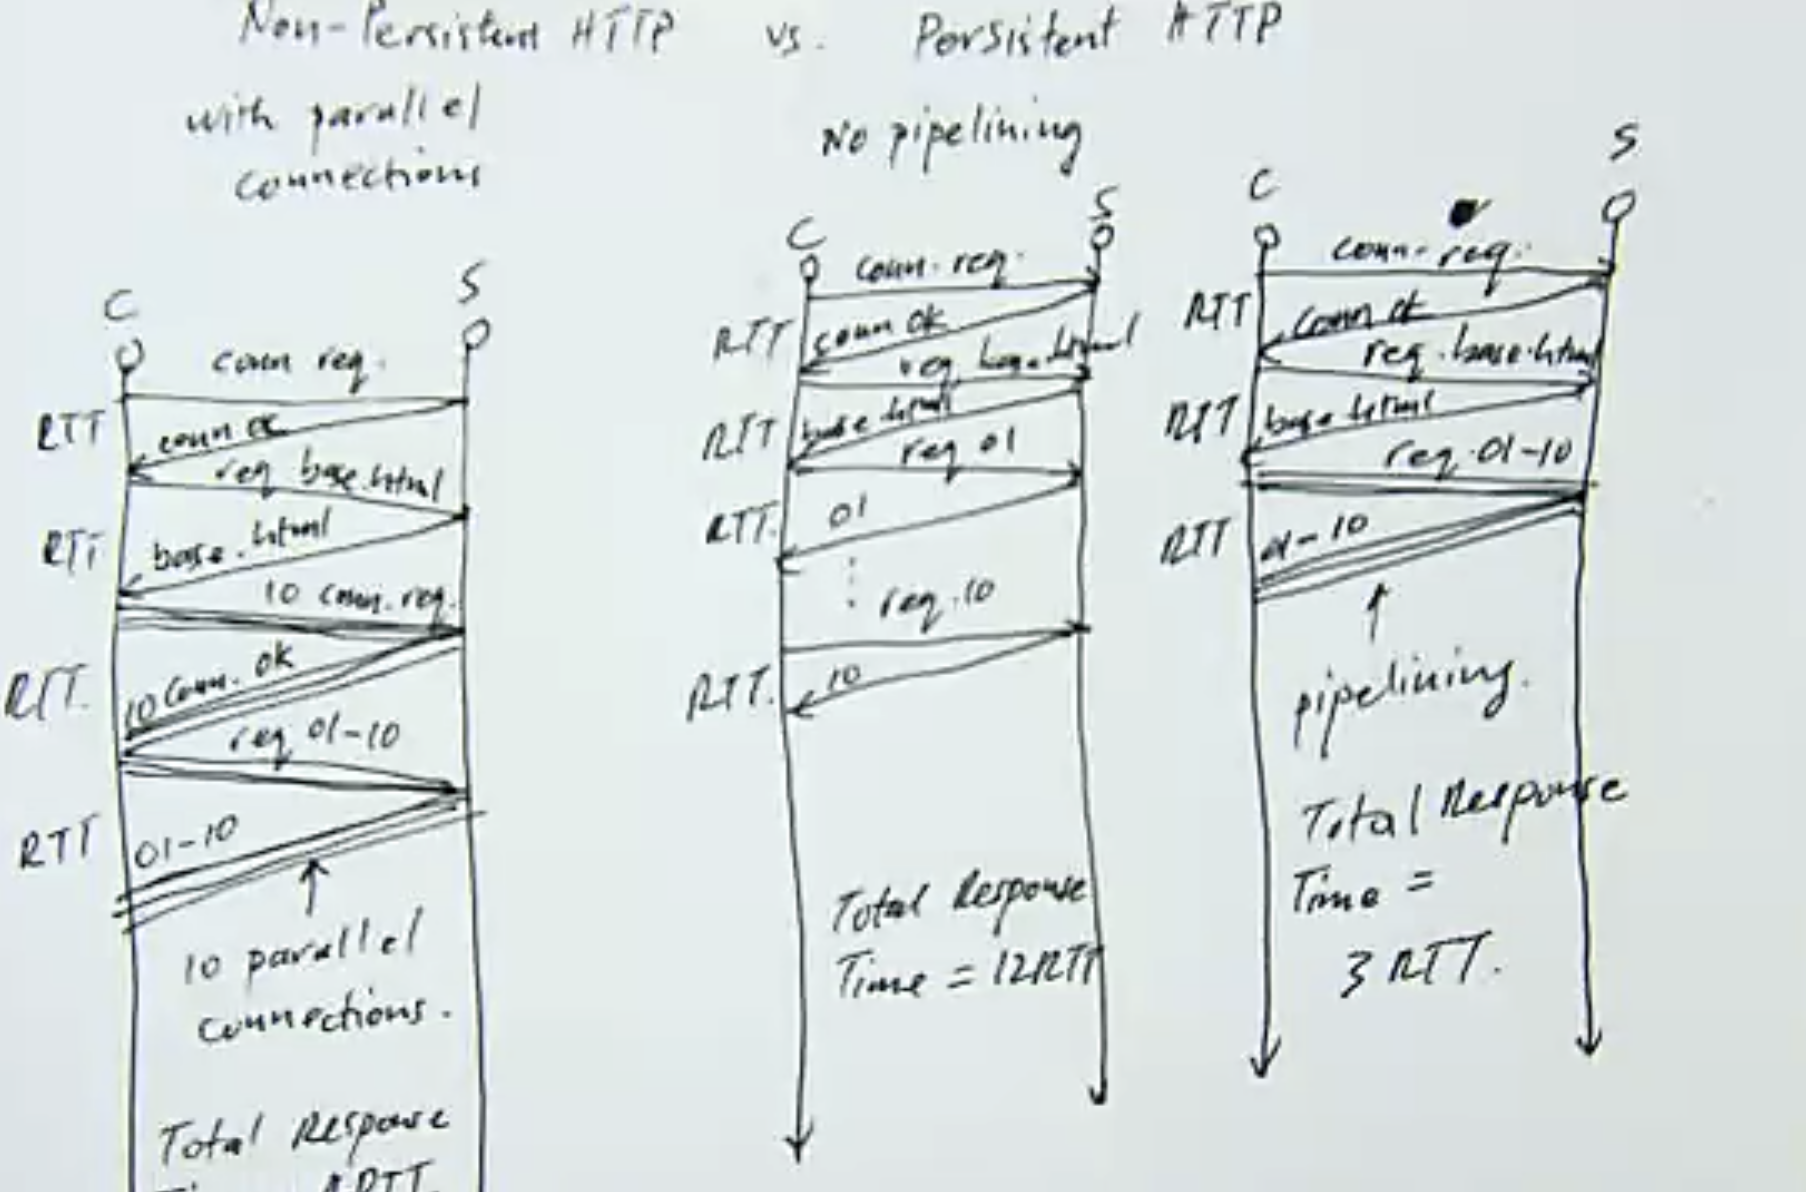 Non-Persistent HTTP vs. Persistent HTTP
with parallel
connections
C
S
conn req.
RTT
conn ok
req base.html
RTT
base.html
10 conn.req.
RTT.
10 conn. ok
req 01-10
RTT
01-10
10 parallel
connections.
Total Response
No pipelining
C
S
conn. req.
RTT
conn ok
req base.html
RTT
base.html
req 01
RTT.
01
req.10
RTT.
10
Total Response
Time = 12RTT
C
S
conn. req.
RTT
conn ok
req.base.html
RTT
base.html
req.01-10
RTT
01-10
pipelining.
Total Response
Time =
3 RTT.